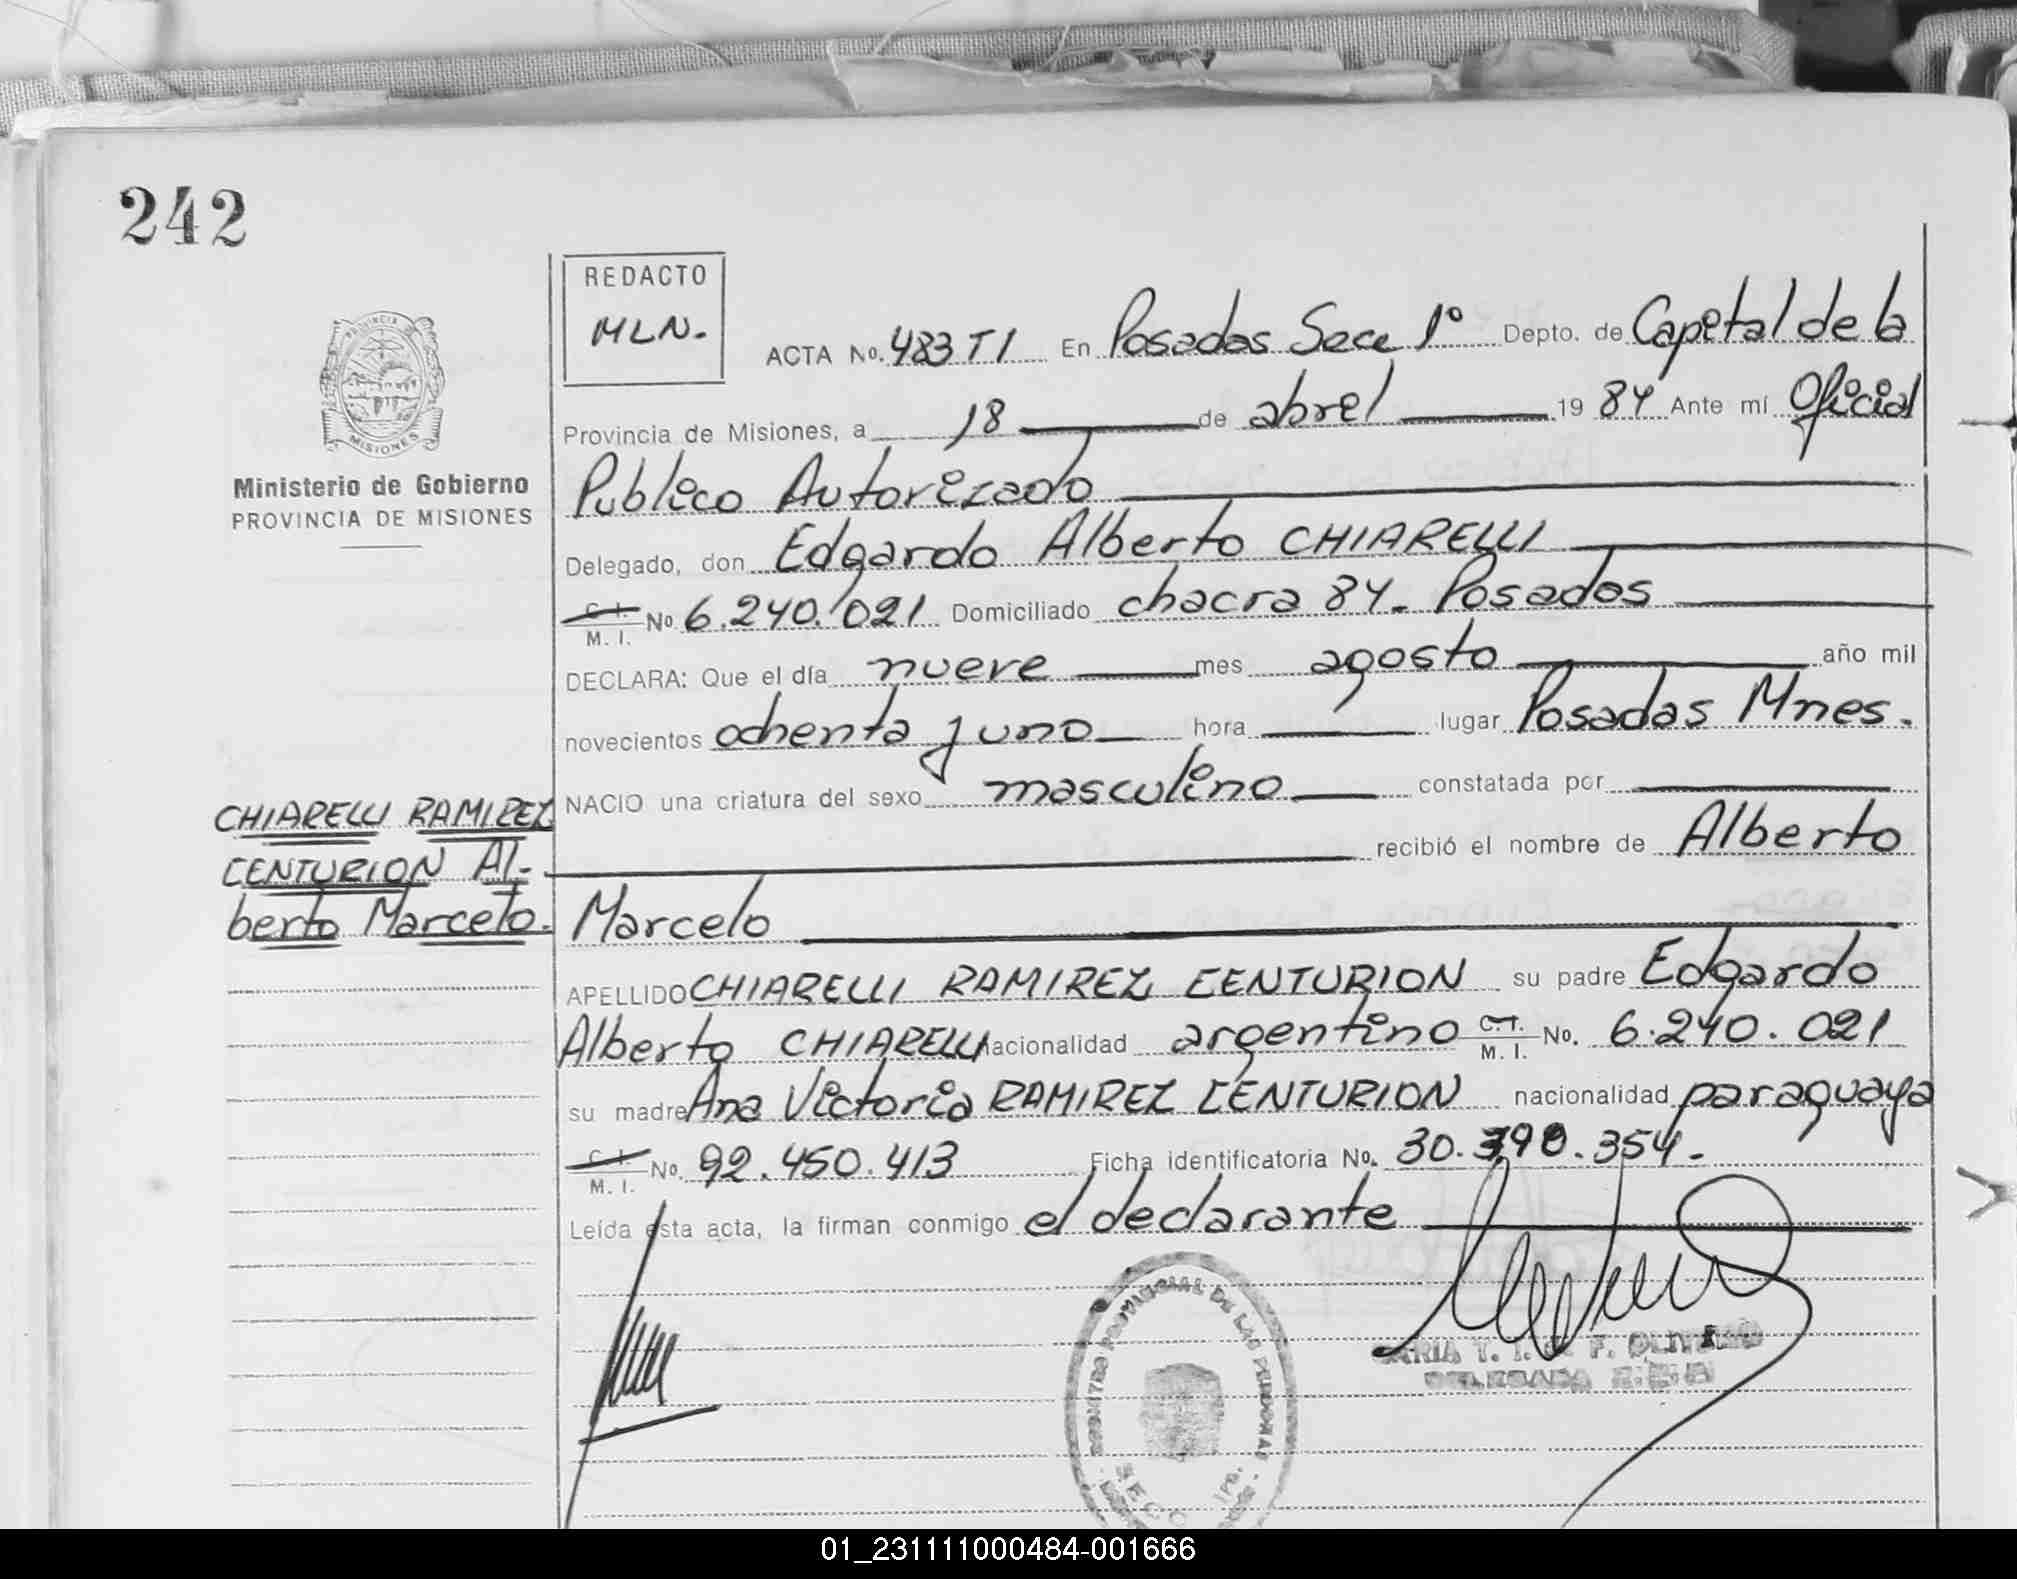 242
REDACTO
MLN.
PROVINCIA DE
MISIONES
Ministerio de Gobierno
PROVINCIA DE MISIONES
ACTA No. 483 T I En Posadas Secc 1° Depto. de Capital de la
Provincia de Misiones, a 18 de abril 1984 Ante mí Oficial
Publico Autorizado
Delegado, don Edgardo Alberto CHIARELLI
C. I.
M. I. No. 6.240.021 Domiciliado chacra 84. Posadas
DECLARA: Que el día nueve mes agosto año mil
novecientos ochenta y uno hora lugar Posadas Mnes.
NACIO una criatura del sexo masculino constatada por
recibió el nombre de Alberto
Marcelo
CHIARELLI RAMIREZ
CENTURION Al-
berto Marcelo.
APELLIDO CHIARELLI RAMIREZ CENTURION su padre Edgardo
Alberto CHIARELLI nacionalidad argentino C. I. M. I. No. 6.240.021
su madre Ana Victoria RAMIREZ CENTURION nacionalidad paraguaya
C. I.
M. I. No. 92.450.413 Ficha identificatoria No. 30.390.354.
Leída esta acta, la firman conmigo el declarante
PROVINCIAL DE LAS PERSONAS
SECC
MARIA T. F.
DELEGADA
01_231111000484-001666